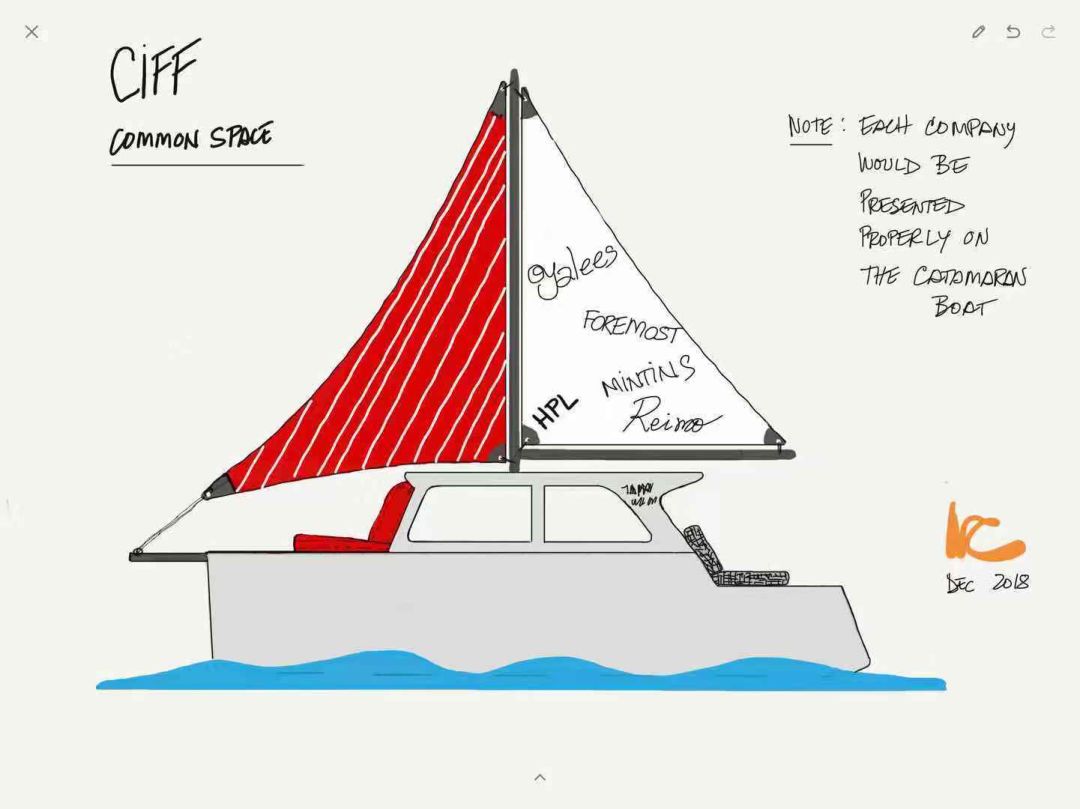 CIFF
COMMON SPACE
NOTE: EACH COMPANY
WOULD BE
PRESENTED
PROPERLY ON
THE CATAMARAN
BOAT
FOREMOST
MINTINS
HPL
Reimo
DEC 2018